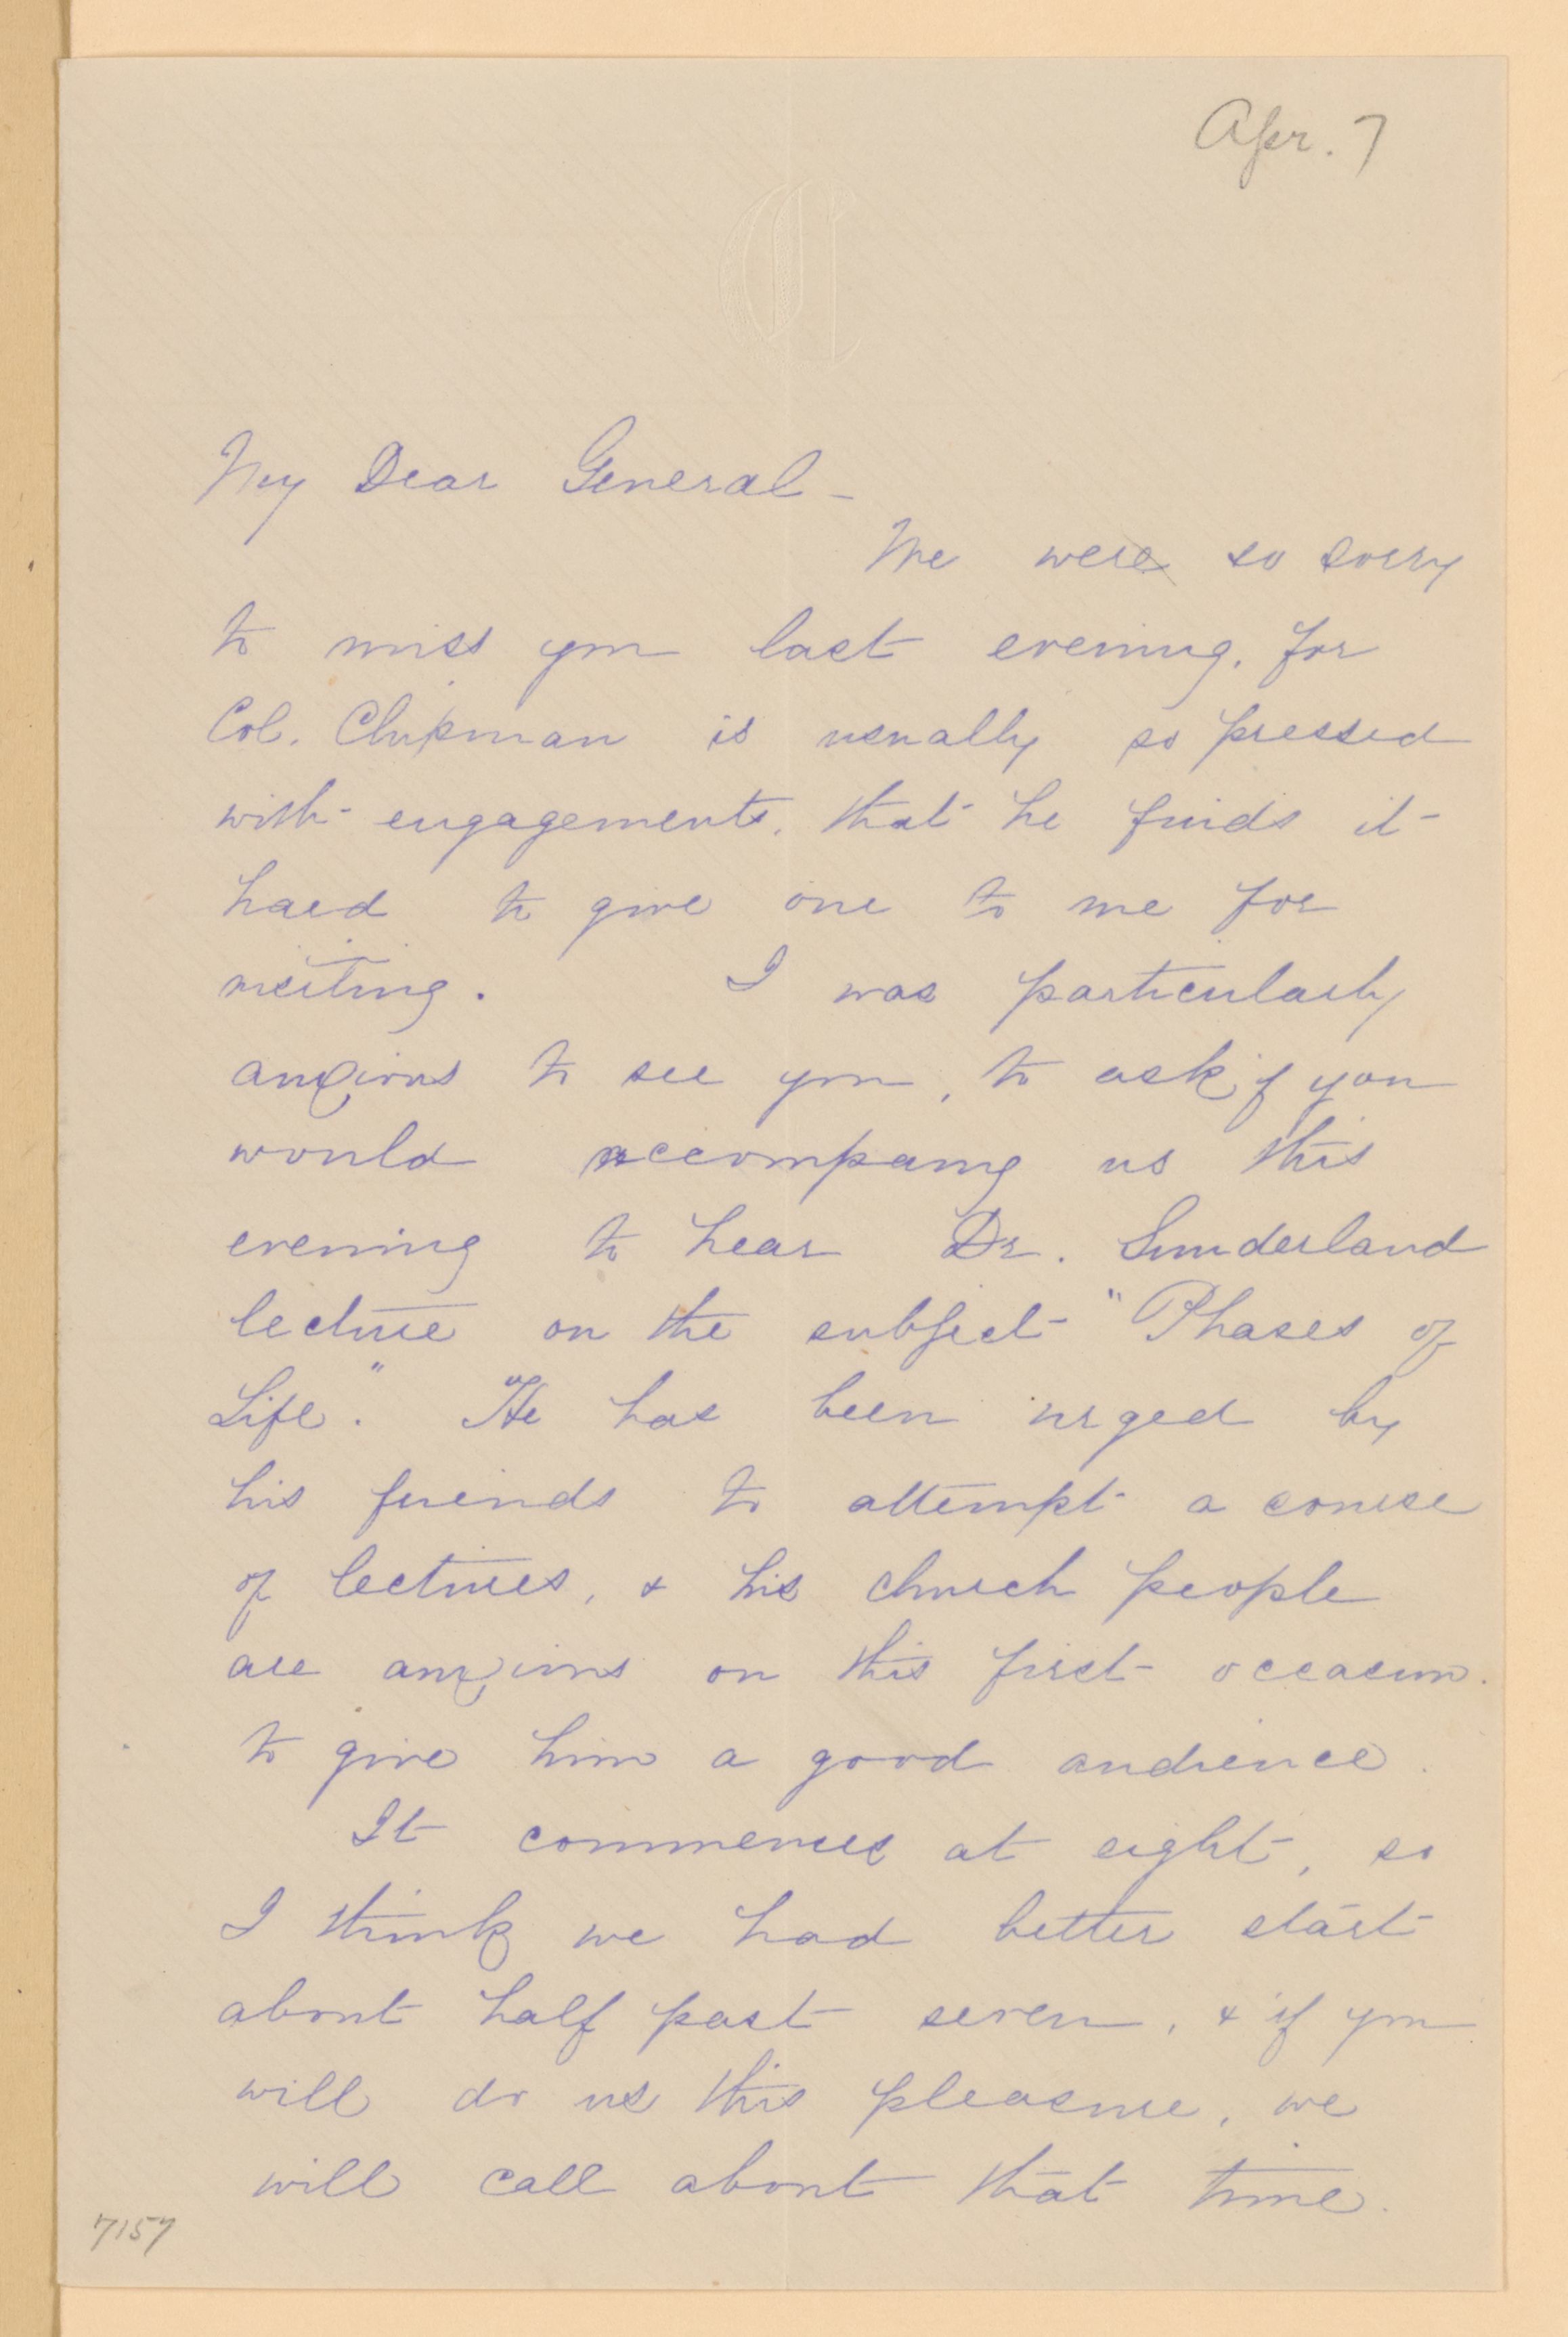 Apr. 7
C
My Dear General -
We were so sorry
to miss you last evening, for
Col. Chipman is usually so pressed
with engagements, that he finds it
hard to give one to me for
visiting. I was particularly
anxious to see you, to ask if you
would accompany us this
evening to hear Dr. Sunderland
lecture on the subject "Phases of
Life." He has been urged by
his friends to attempt a course
of lectures, & his church people
are anxious on this first occasion
to give him a good audience.
It commences at eight, so
I think we had better start
about half past seven, & if you
will do us this pleasure, we
will call about that time.
7157